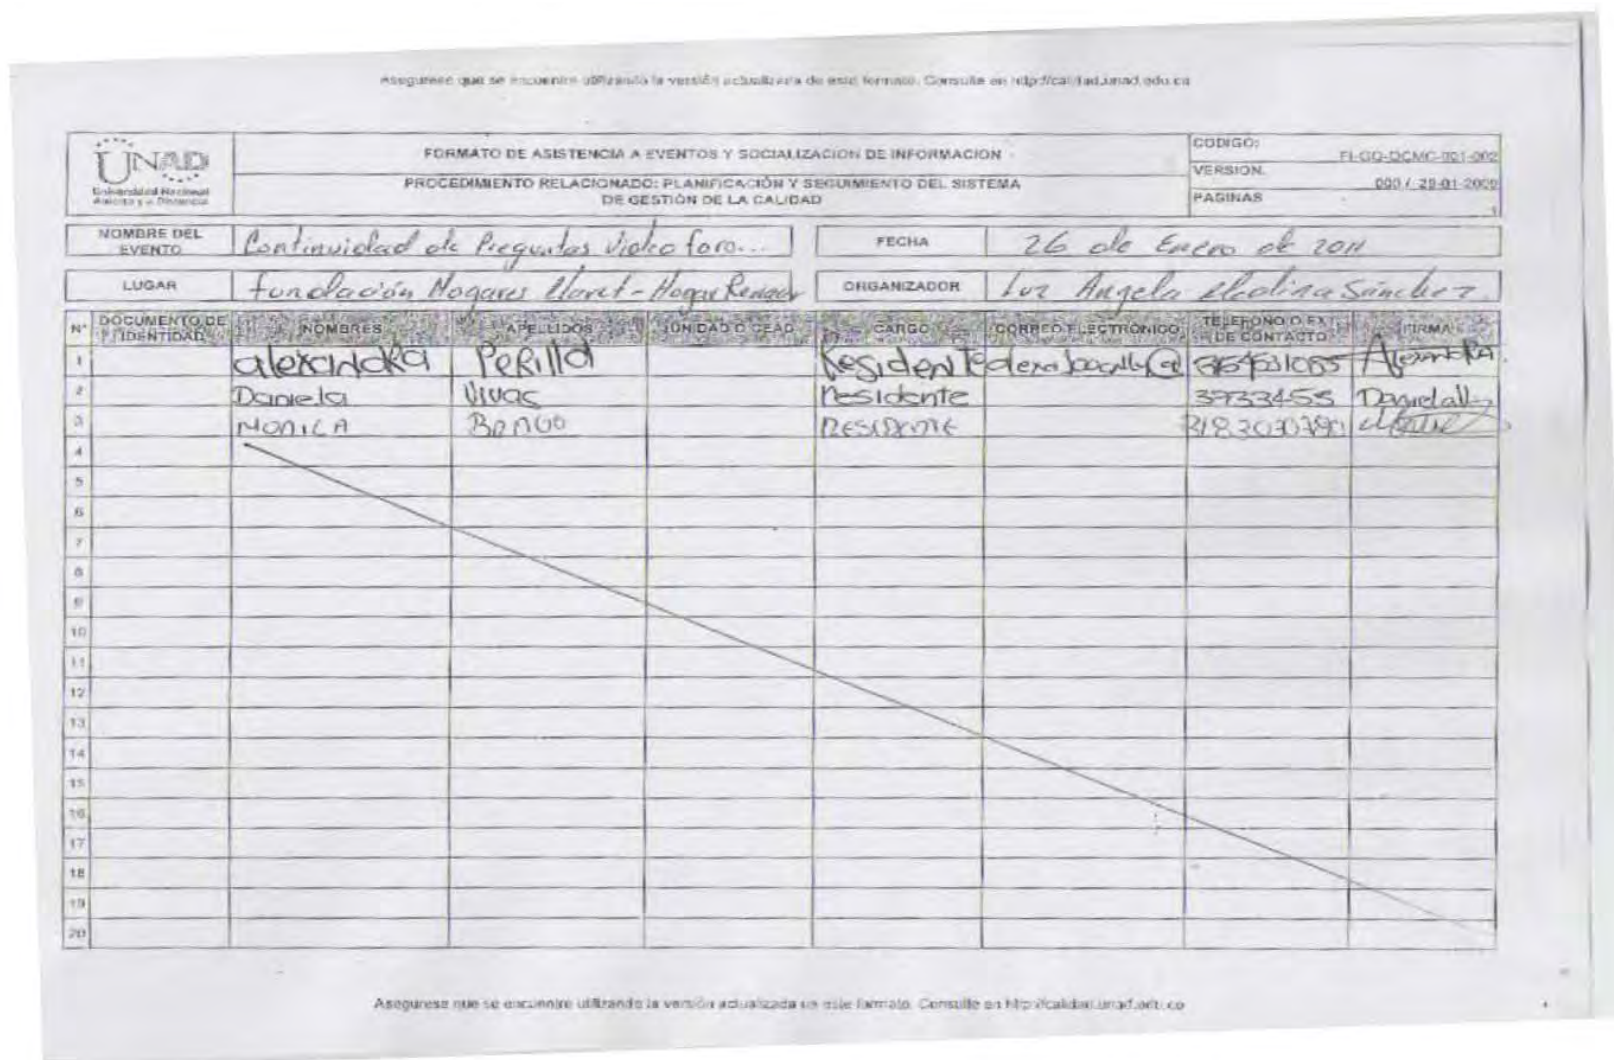 Asegurese que se encuentre utilizando la versión actualizada de este formato. Consulte en http://calidad.unad.edu.co
UNAD
Universidad Nacional
Abierta y a Distancia
FORMATO DE ASISTENCIA A EVENTOS Y SOCIALIZACION DE INFORMACION
PROCEDIMIENTO RELACIONADO: PLANIFICACIÓN Y SEGUIMIENTO DEL SISTEMA
DE GESTIÓN DE LA CALIDAD
CODIGO:
FI-GQ-DCMC-001-002
VERSION.
000 / 29-01-2009
PAGINAS
1
NOMBRE DEL
EVENTO
Continuidad de Preguntas Video foro...
FECHA
26 de Enero de 2011
LUGAR
Fundación Hogares Claret - Hogar Renacer
ORGANIZADOR
Luz Angela Medina Sánchez
N° DOCUMENTO DE IDENTIDAD NOMBRES APELLIDOS UNIDAD O CEAD CARGO CORREO ELECTRÓNICO TELEFONO O EXT DE CONTACTO FIRMA
1 alexandRa PeRilla Residente Alexandra
2 Daniela Vivas residente 3733455
3 MONICA RESIDENTE
4
5
6
7
8
9
10
11
12
13
14
15
16
17
18
19
20
Asegurese que se encuentre utilizando la versión actualizada de este formato. Consulte en http://calidad.unad.edu.co